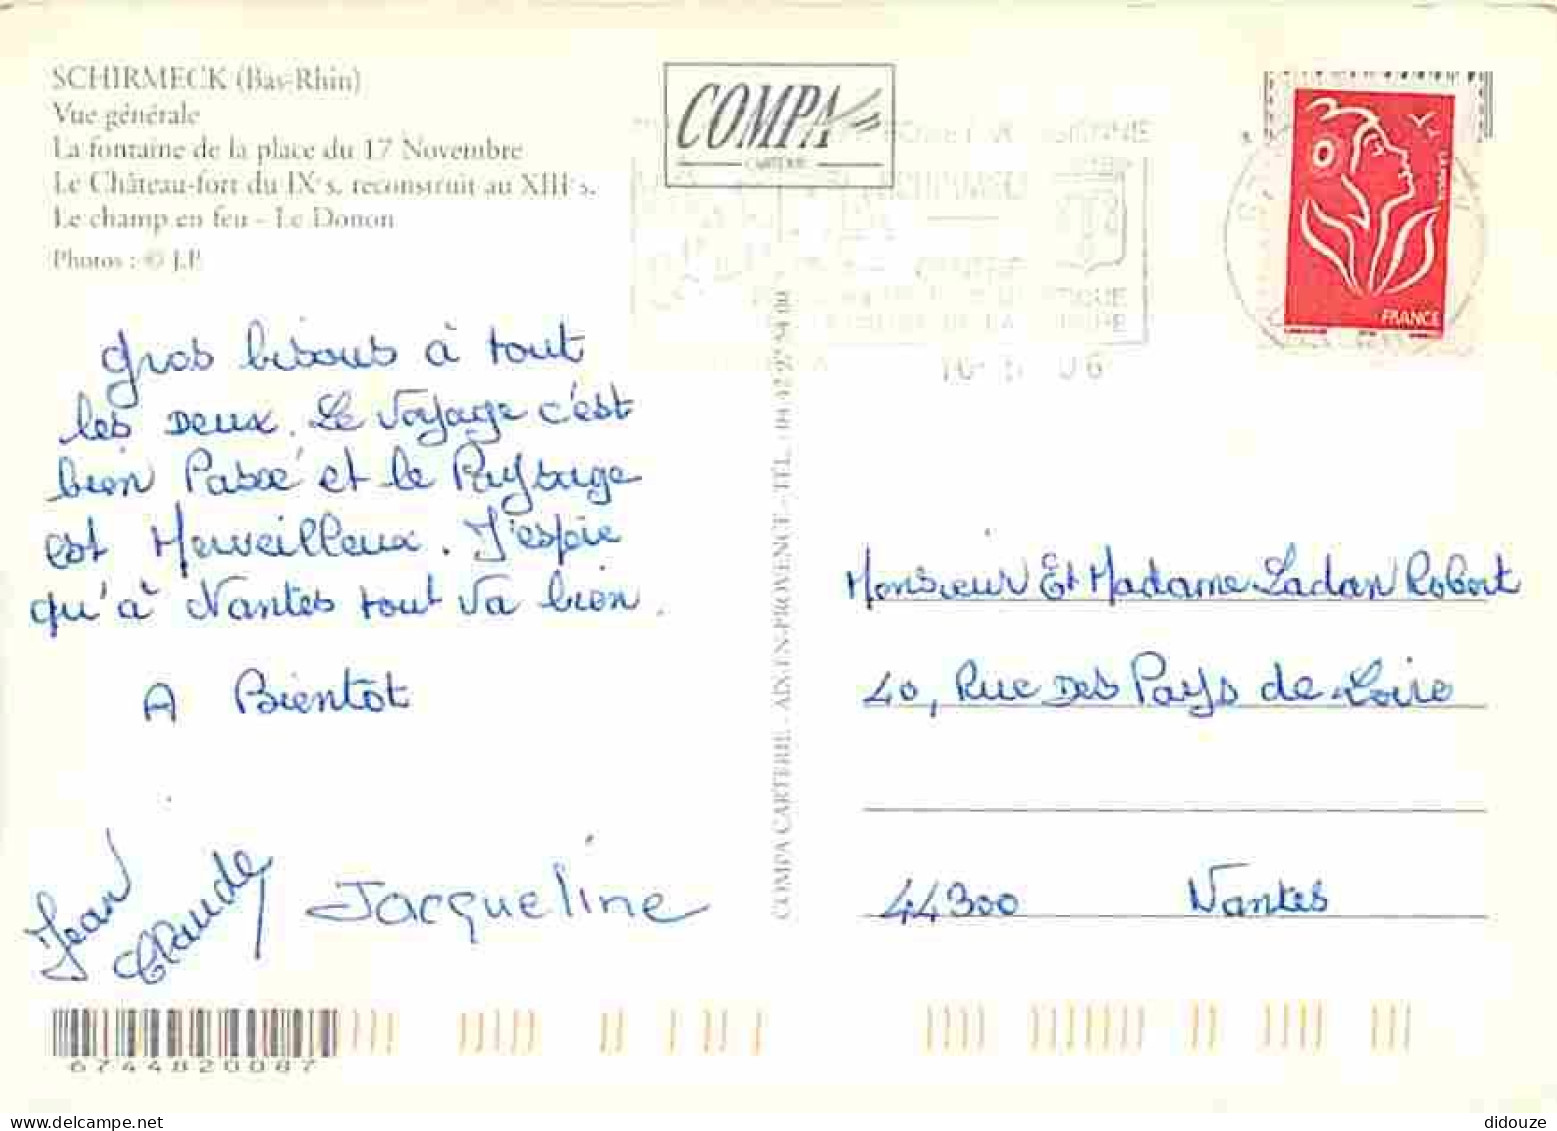 SCHIRMECK (Bas-Rhin)
Vue générale
La fontaine de la place du 17 Novembre
Le Château-fort du IXe s. reconstruit au XIIIe s.
Le champ en feu - Le Donon
Photos : © J.P.
COMPA
CARTERIE
FRANCE
Gros bisous à tout
les Deux. Le Voyage c'est
bien Passé et le Paysage
est Merveilleux. J'espie
qu'à Nantes tout va bien.
A Bientôt
Jean
Claude
Jacqueline
COMPA CARTERIE - AIX-EN-PROVENCE - TÉL. : 04 42 27 54 00
Monsieur Et Madame Ladan Robert
40, Rue Des Pays de-Loire
44300 Nantes
6744820087
didouze